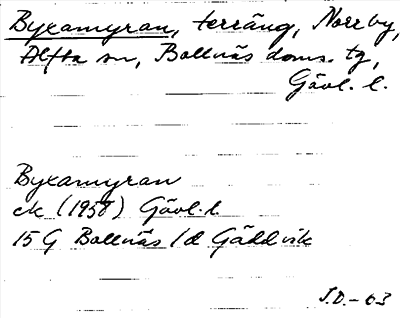 Byxamyran, terräng, Norrby,
Alfta sn, Bollnäs doms. tg,
Gävl. l.
Byxamyran
ek (1958) Gävl. l.
15 G Bollnäs 1d Gäddvik
J.D.-63